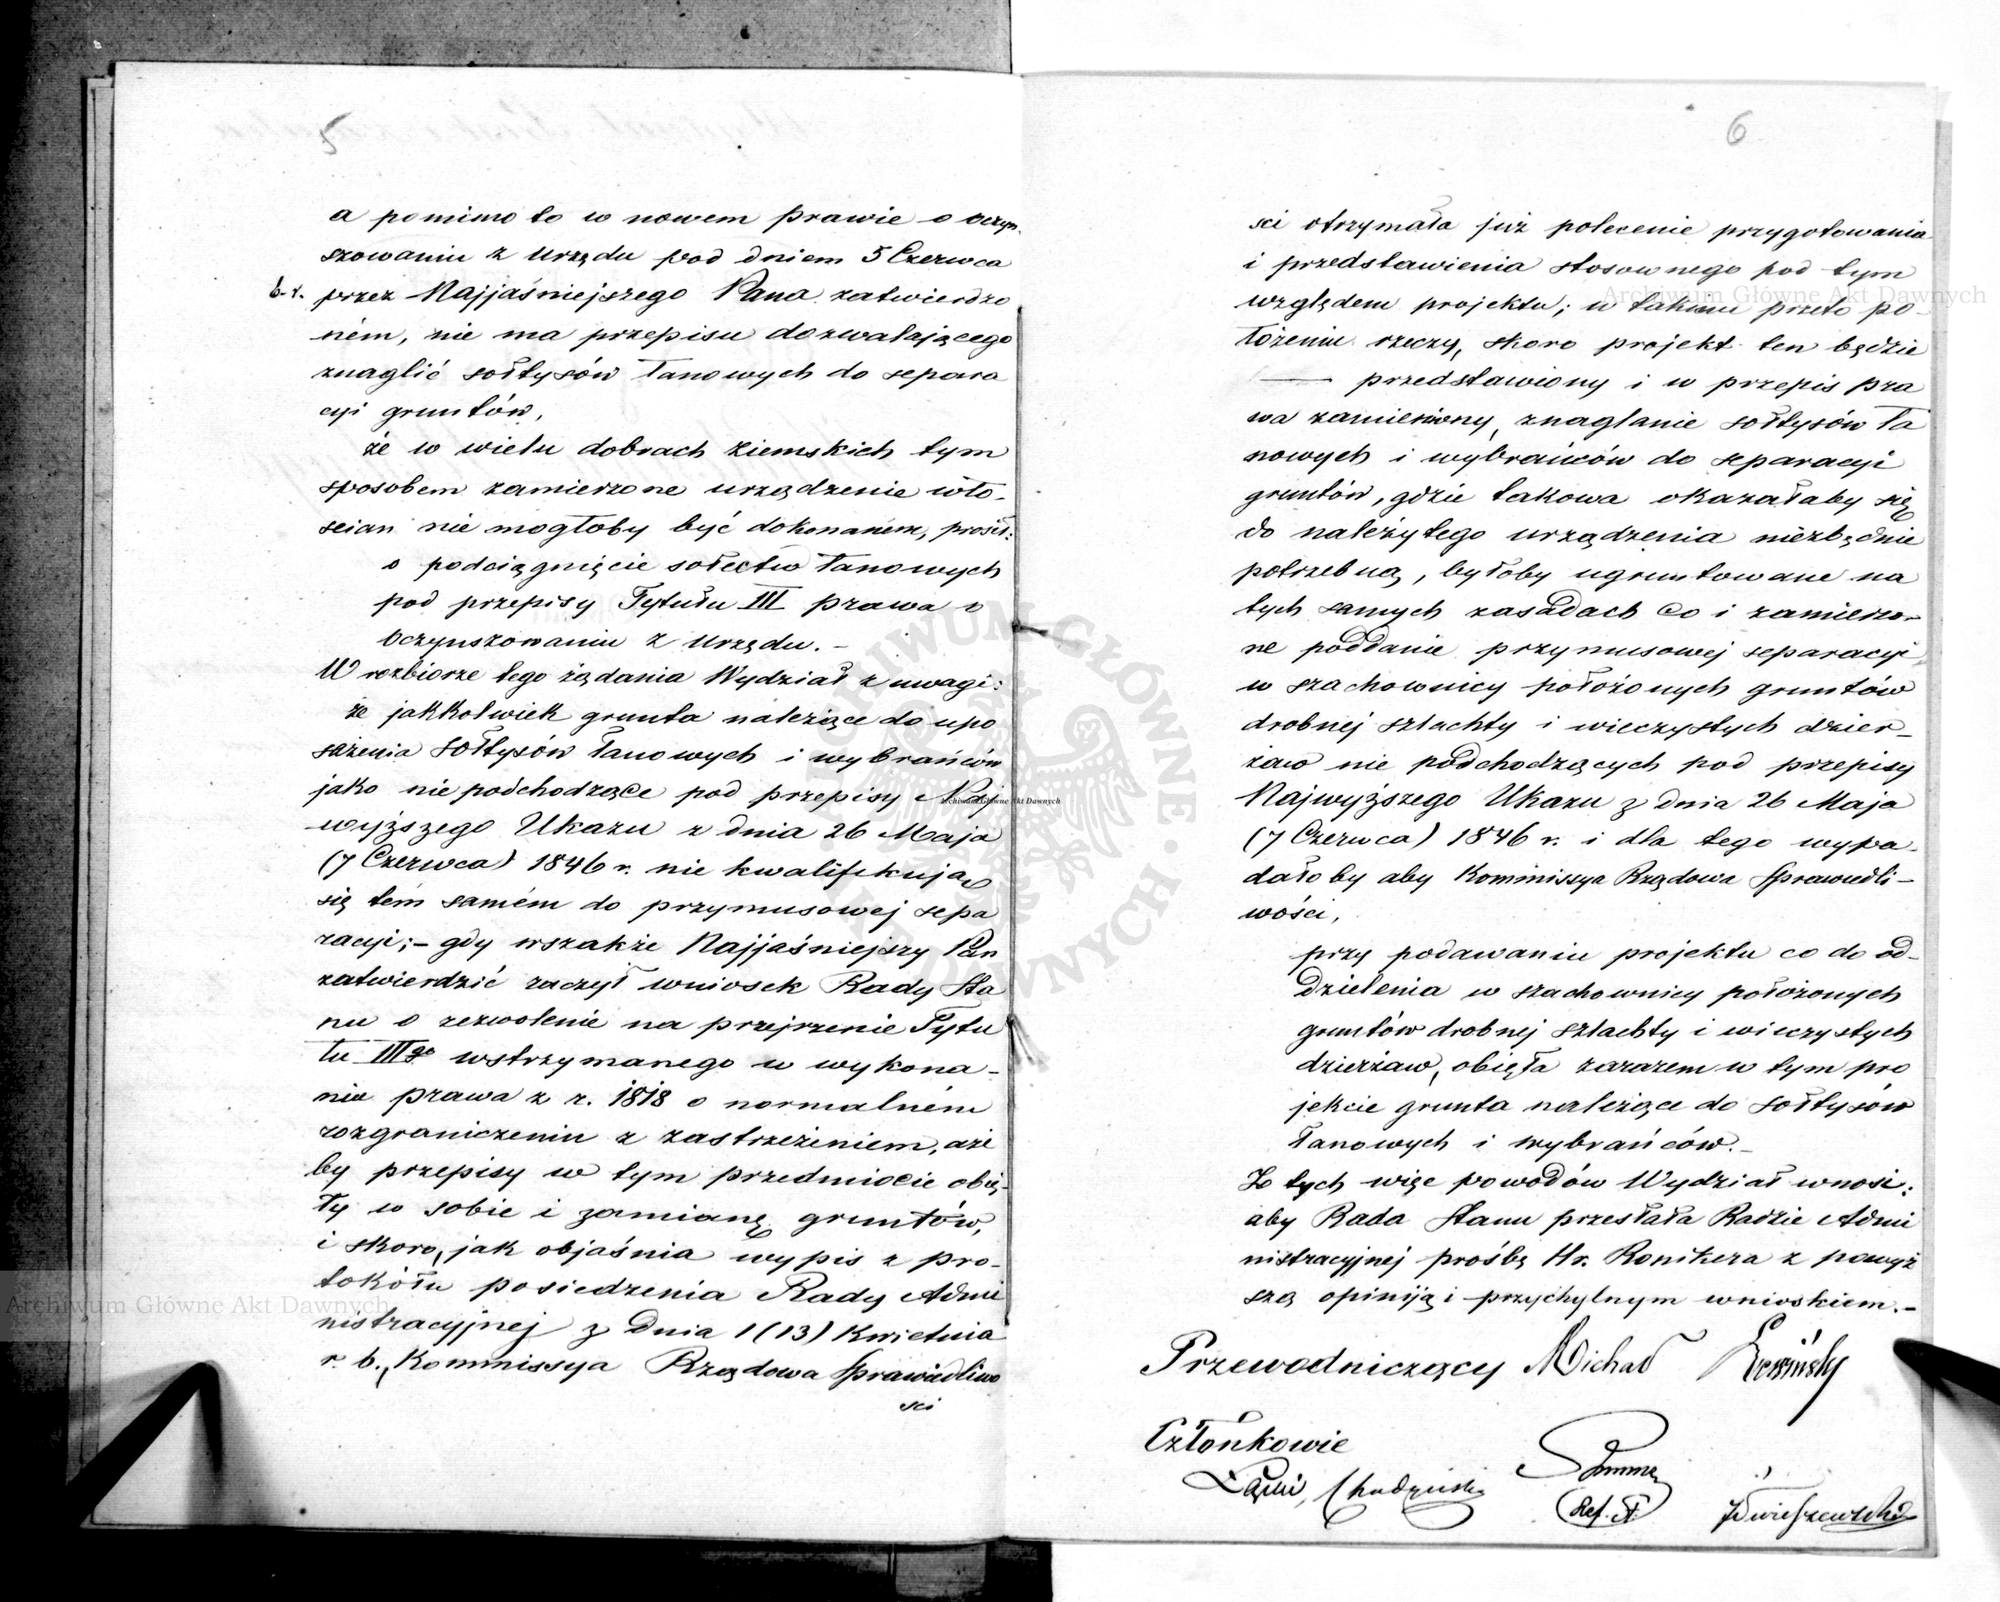 5
a pomimo to w nowem prawie o oczyn-
szowaniu z urzędu pod dniem 5 Czerwca
b. r. przez Najjaśniejszego Pana zatwierdzo
ném, nie ma przepisu dozwalającego
znaglić sołtysów łanowych do separa
cyi gruntów,
że w wielu dobrach ziemskich tym
sposobem zamierzone urządzenie wło-
scian nie mogłoby być dokonanem, prosił:
o podciągnięcie sołectw łanowych
pod przepisy Tytułu III prawa o
oczynszowaniu z urzędu. –
W rozbiorze tego żądania Wydział z uwagi:
że jakkolwiek grunta należące do upo
sażenia sołtysów łanowych i wybrańców
jako nie podchodzące pod przepisy Naj
wyższego Ukazu z dnia 26 Maja
(7 Czerwca) 1846 r. nie kwalifikują
się tém samém do przymusowej sepa
racyi; – gdy wszakże Najjaśniejszy Pan
zatwierdzić raczył wniosek Rady Sta
nu o zezwolenie na przejrzenie Tytu
łu IIIgo wstrzymanego w wykona-
niu prawa z r. 1818 o normalném
rozgraniczeniu z zastrzeżeniem, aże
by przepisy w tym przedmiocie obję-
ły w sobie i zamianę gruntów,
i skoro, jak objaśnia wypis z pro-
tokółu posiedzenia Rady Admi
nistracyjnej z dnia 1 (13) Kwietnia
r. b., Kommissya Rządowa Sprawiedliwo
sci
6
sci otrzymała już polecenie przygotowania
i przedstawienia stosownego pod tym
względem projektu; w takim przeto po-
łożeniu rzeczy, skoro projekt ten będzie
— przedstawiony i w przepis pra
wa zamieniony, znaglanie sołtysów ła
nowych i wybrańców do separacyi
gruntów, gdzie takowa okazałaby się
do należytego urządzenia niezbędnie
potrzebną, byłoby ugruntowane na
tych samych zasadach co i zamierzo-
ne poddanie przymusowej separacyi
w szachownicy położonych gruntów
drobnej szlachty i wieczystych dzier-
żaw nie podchodzących pod przepisy
Najwyższego Ukazu z dnia 26 Maja
(7 Czerwca) 1846 r. i dla tego wypa-
dało by aby Kommissya Rządowa Sprawiedli-
wości,
przy podawaniu projektu co do od-
dzielenia w szachownicy położonych
gruntów drobnej szlachty i wieczystych
dzierżaw, objęła zarazem w tym pro
jekcie grunta należące do sołtysów
łanowych i wybrańców. –
Z tych więc powodów Wydział wnosi:
aby Rada Stanu przesłała Radzie Admi
nistracyjnej prośbę Hr. Ronikera z powyż
szą opiniją i przychylnym wnioskiem. –
Przewodniczący Michał
Członkowie
Ref. St.
Archiwum Główne Akt Dawnych
Archiwum Główne Akt Dawnych
Archiwum Główne Akt Dawnych
ARCHIWUM GŁÓWNE AKT DAWNYCH